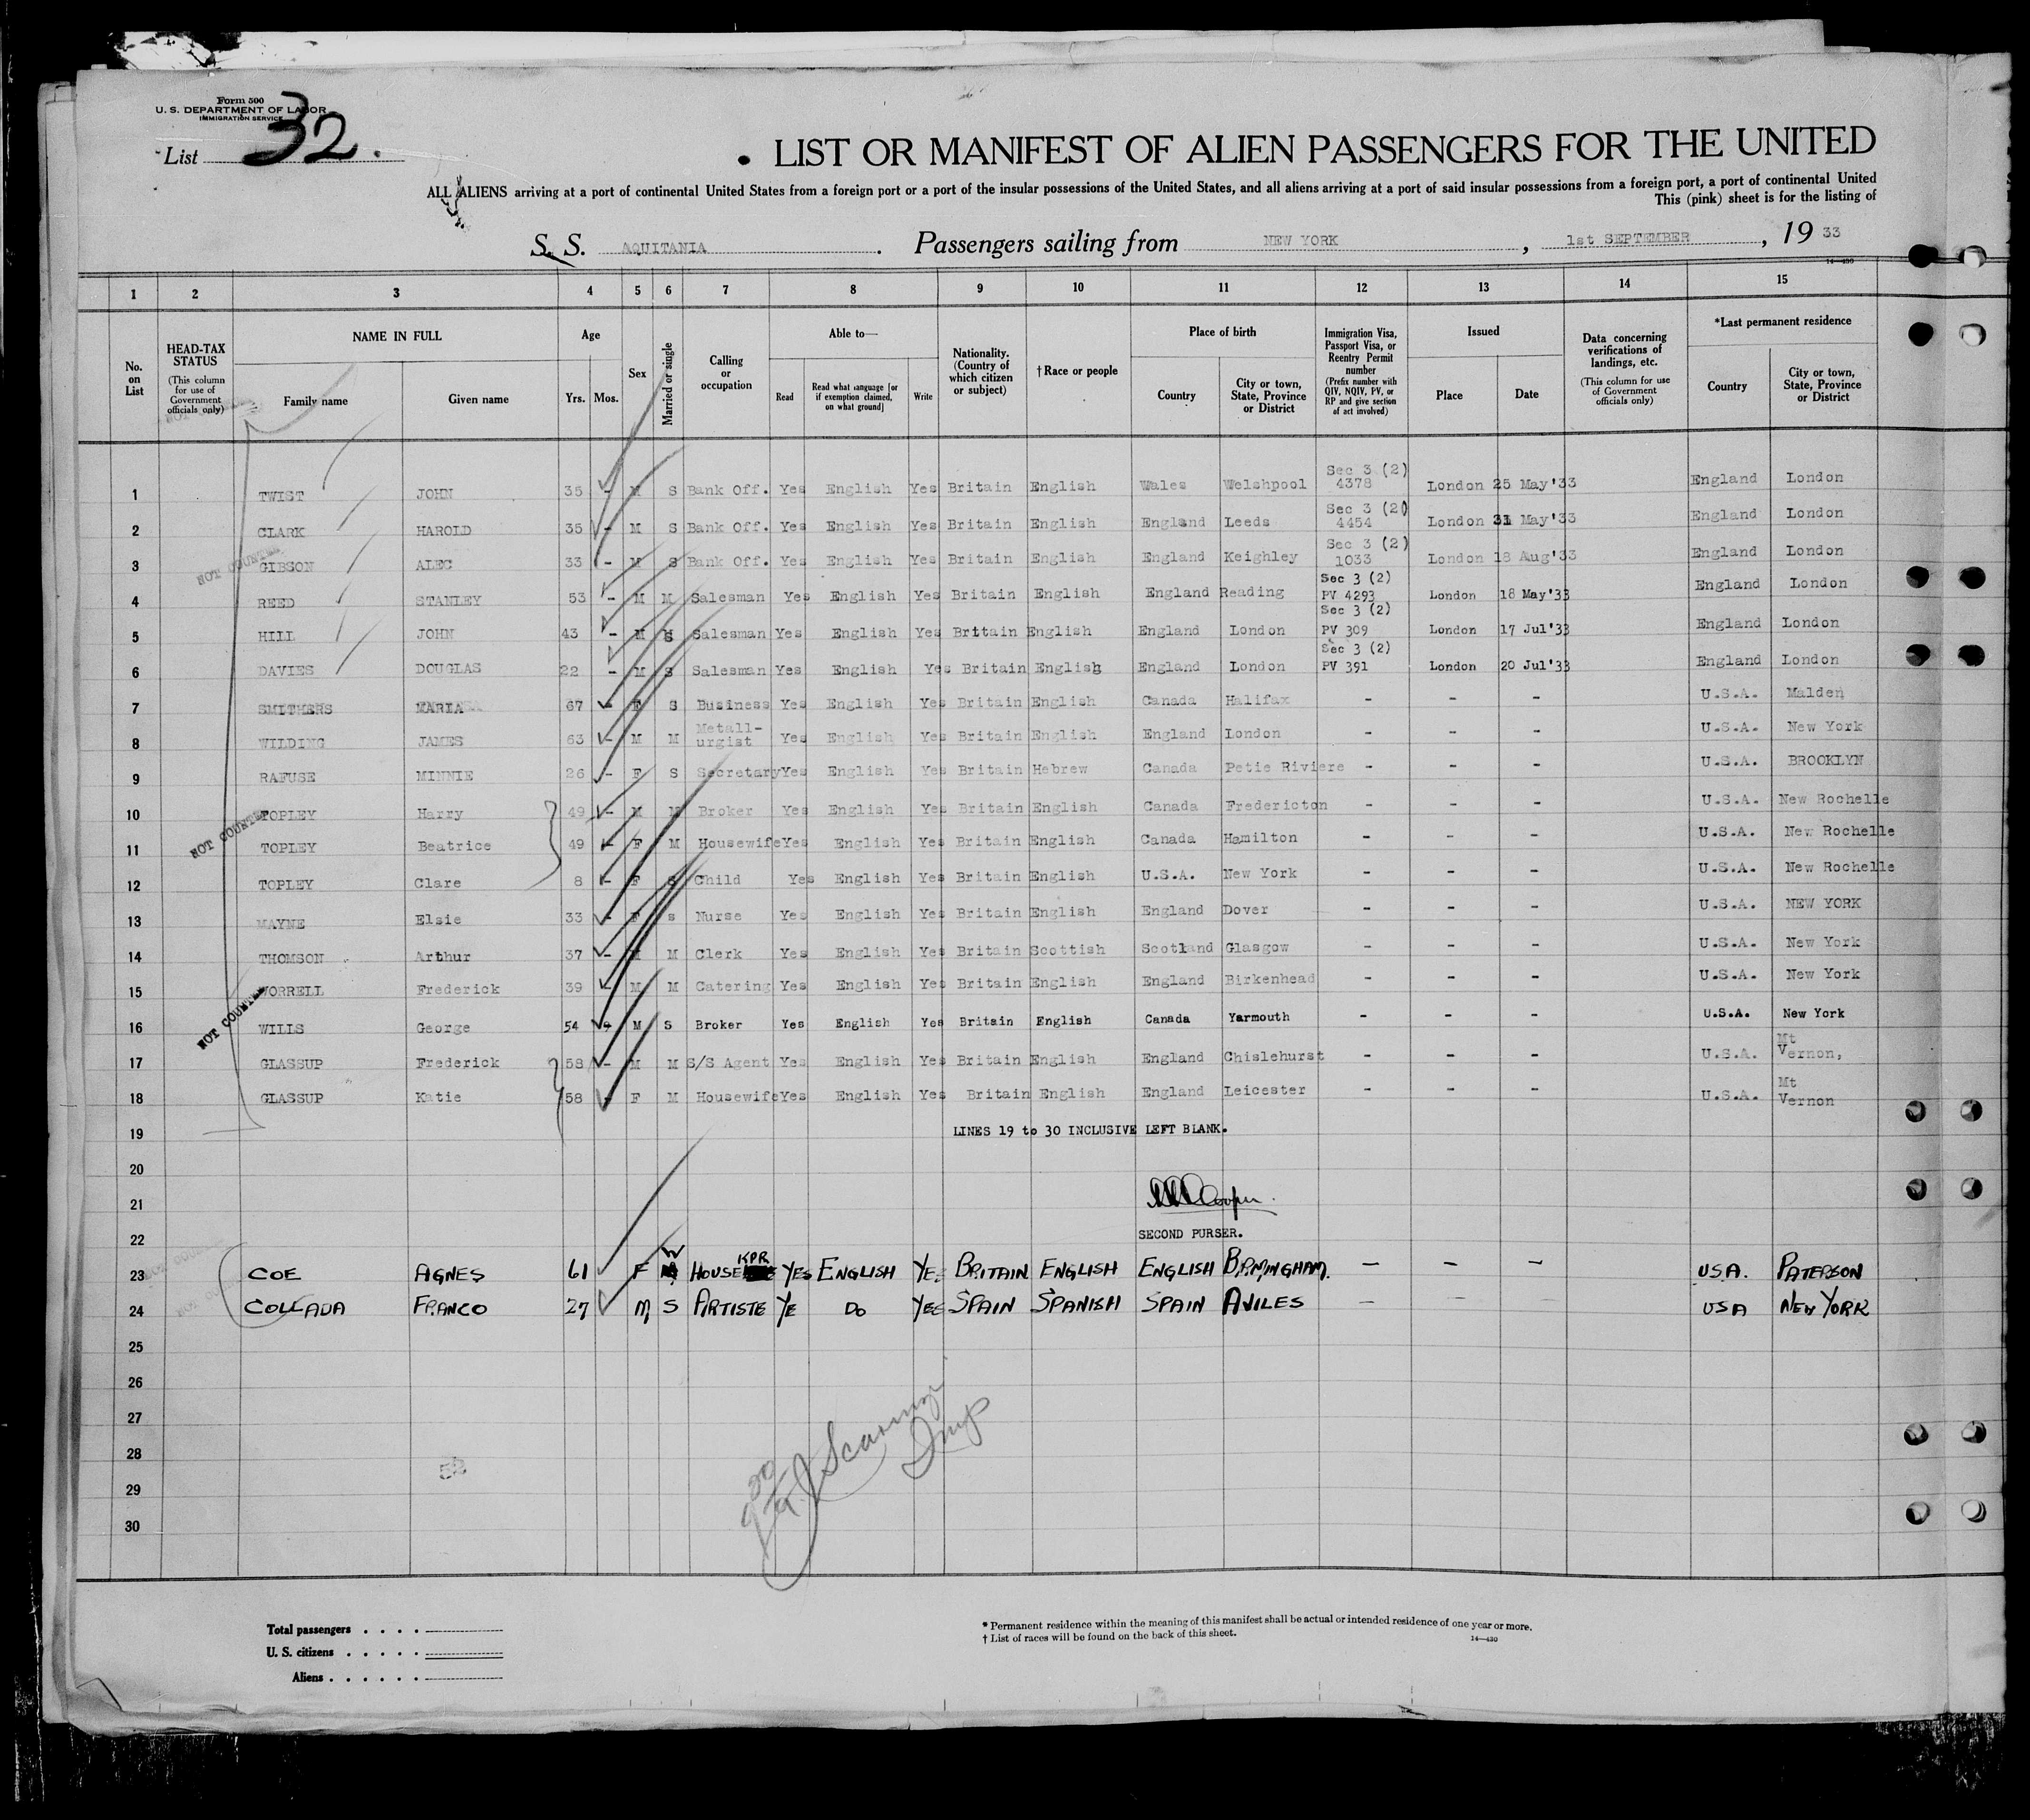 Form 500
U. S. DEPARTMENT OF LABOR
IMMIGRATION SERVICE
List 32.
LIST OR MANIFEST OF ALIEN PASSENGERS FOR THE UNITED
ALL ALIENS arriving at a port of continental United States from a foreign port or a port of the insular possessions of the United States, and all aliens arriving at a port of said insular possessions from a foreign port, a port of continental United
This (pink) sheet is for the listing of
S. S. AQUITANIA . Passengers sailing from NEW YORK , 1st SEPTEMBER , 19 33
14—430
1 2 3 4 5 6 7 8 9 10 11 12 13 14 15
No. on List
HEAD-TAX STATUS (This column for use of Government officials only)
NAME IN FULL Family name Given name
Age Yrs. Mos.
Sex
Married or single
Calling or occupation
Able to— Read Read what language [or if exemption claimed, on what ground] Write
Nationality. (Country of which citizen or subject)
†Race or people
Place of birth Country City or town, State, Province or District
Immigration Visa, Passport Visa, or Reentry Permit number (Prefix number with QIV, NQIV, PV, or RP and give section of act involved)
Issued Place Date
Data concerning verifications of landings, etc. (This column for use of Government officials only)
*Last permanent residence Country City or town, State, Province or District
1 TWIST JOHN 35 - M S Bank Off. Yes English Yes Britain English Wales Welshpool Sec 3 (2) 4378 London 25 May'33 England London
2 CLARK HAROLD 35 - M S Bank Off. Yes English Yes Britain English England Leeds Sec 3 (2) 4454 London 31 May'33 England London
NOT COUNTED
3 GIBSON ALEC 33 - M S Bank Off. Yes English Yes Britain English England Keighley Sec 3 (2) 1033 London 18 Aug'33 England London
4 REED STANLEY 53 - M M Salesman Yes English Yes Britain English England Reading Sec 3 (2) PV 4293 London 18 May'33 England London
5 HILL JOHN 43 - M S Salesman Yes English Yes Britain English England London Sec 3 (2) PV 309 London 17 Jul'33 England London
6 DAVIES DOUGLAS 22 - M S Salesman Yes English Yes Britain English England London Sec 3 (2) PV 391 London 20 Jul'33 England London
7 SMITHERS MARIA 67 - F S Business Yes English Yes Britain English Canada Halifax - - - U.S.A. Malden
8 WILDING JAMES 63 - M M Metall-urgist Yes English Yes Britain English England London - - - U.S.A. New York
9 RAFUSE MINNIE 26 - F S Secretary Yes English Yes Britain Hebrew Canada Petie Riviere - - - U.S.A. BROOKLYN
10 TOPLEY Harry 49 - M M Broker Yes English Yes Britain English Canada Fredericton - - - U.S.A. New Rochelle
NOT COUNTED
11 TOPLEY Beatrice 49 - F M Housewife Yes English Yes Britain English Canada Hamilton - - - U.S.A. New Rochelle
12 TOPLEY Clare 8 - F S Child Yes English Yes Britain English U.S.A. New York - - - U.S.A. New Rochelle
13 MAYNE Elsie 33 - F s Nurse Yes English Yes Britain English England Dover - - - U.S.A. NEW YORK
14 THOMSON Arthur 37 - M M Clerk Yes English Yes Britain Scottish Scotland Glasgow - - - U.S.A. New York
15 WORRELL Frederick 39 - M M Catering Yes English Yes Britain English England Birkenhead - - - U.S.A. New York
NOT COUNTED
16 WILLS George 54 - M S Broker Yes English Yes Britain English Canada Yarmouth - - - U.S.A. New York
17 GLASSUP Frederick 58 - M M S/S Agent Yes English Yes Britain English England Chislehurst - - - U.S.A. Mt Vernon,
18 GLASSUP Katie 58 - F M Housewife Yes English Yes Britain English England Leicester - - - U.S.A. Mt Vernon
19 LINES 19 to 30 INCLUSIVE LEFT BLANK.
20
21 Cooper.
22 SECOND PURSER.
23 COE AGNES 61 F W HOUSE KPR YES ENGLISH YES BRITAIN ENGLISH ENGLISH BIRMINGHAM. - - - USA. PATERSON
24 COLLADA FRANCO 27 M S ARTISTE YE DO YES SPAIN SPANISH SPAIN AVILES - - - USA NEW YORK
25
26
27
28
52
29
30
Total passengers . . . .
U. S. citizens . . . . .
Aliens . . . . . .
* Permanent residence within the meaning of this manifest shall be actual or intended residence of one year or more.
† List of races will be found on the back of this sheet.
14—430